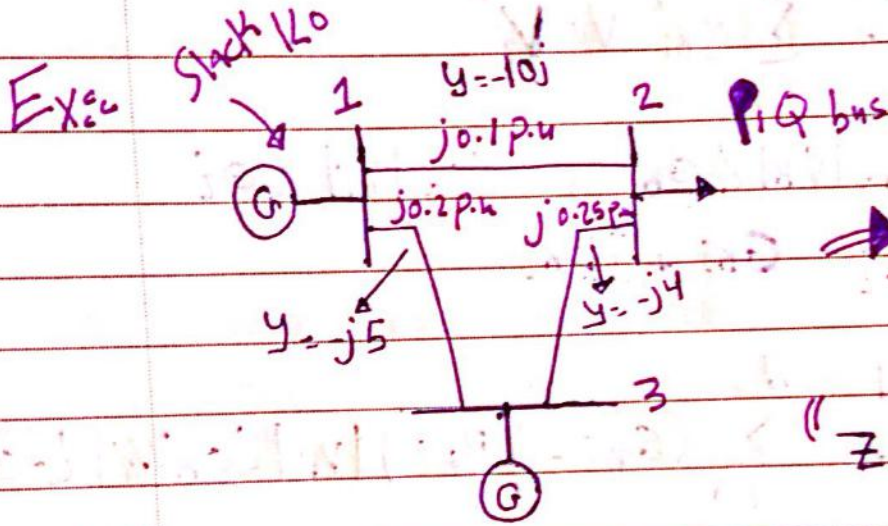 Ex:
Slack 1∠0
y=-10j
1
2
j0.1 p.u
P,Q bus
G
j0.2 p.u
j0.25 p.u
y=-j5
y=-j4
3
" Z
G